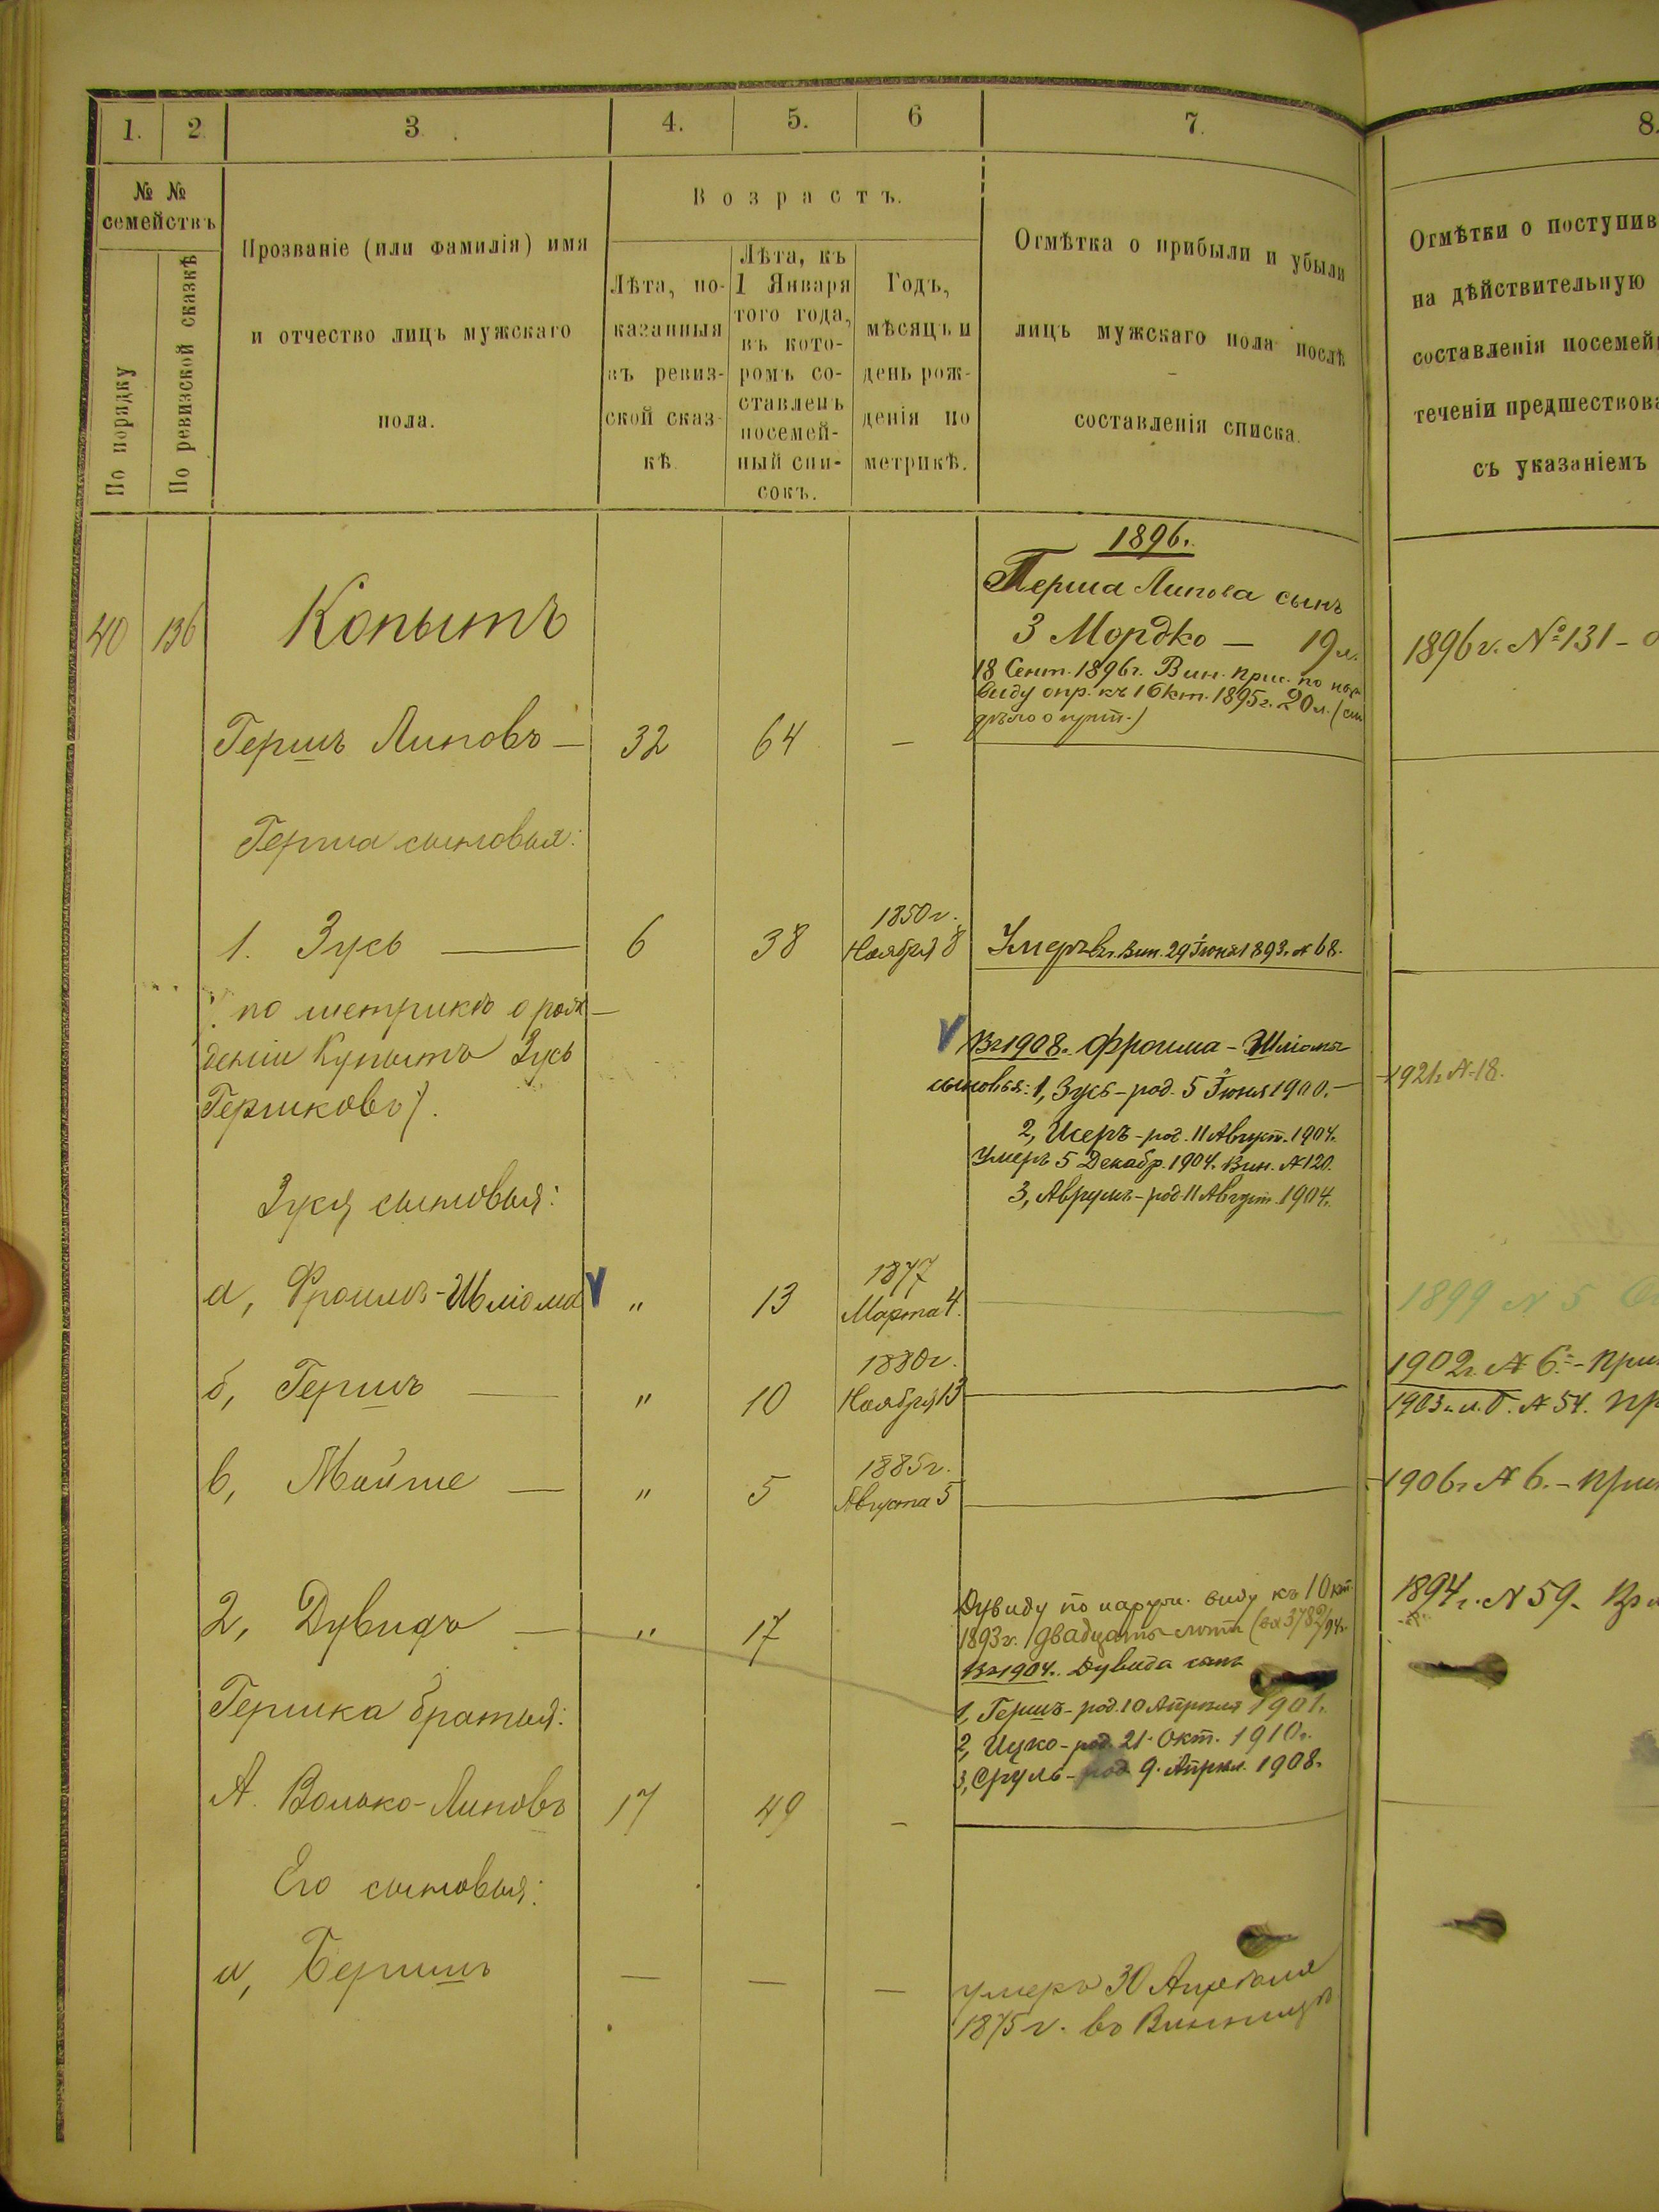 1. 2. 3. 4. 5. 6 7. 8.
№ № семействъ
По порядку
По ревизской сказкѣ
Прозваніе (или фамилія) имя
и отчество лицъ мужскаго
пола.
Возрастъ.
Лѣта, по-
казанныя
въ ревиз-
ской сказ-
кѣ.
Лѣта, къ
1 Января
того года,
въ кото-
ромъ со-
ставленъ
посемей-
ный спи-
сокъ.
Годъ,
мѣсяцъ и
день рож-
денія по
метрикѣ.
Отмѣтка о прибыли и убыли
лицъ мужскаго пола послѣ
составленія списка.
Отмѣтки о поступив
на дѣйствительную
составленія посемей
теченіи предшествова
съ указаніемъ
1896.
Герша Липова сынъ
40 136 Копытъ 3 Мордко — 19 л. 1896 г. № 131 -
18 Сент. 1896 г. Вин. прис. по
виду опр. къ 1 Окт. 1895 г. 20 л.
Гершъ Липовъ — 32 64 —
Герша сыновья:
1. Зусь — 6 38 1850 г. Ноября 8 Умеръ въ г. Вин. 29 Іюня 1893 г. № 68.
по метрикѣ о рож-
деніи Купытъ Зусь
Гершковъ).
V Въ 1908 г. Фроима-Шліомы
сыновья: 1, Зусь - род. 5 Іюня 1900. — 1921 г. № 18.
2, Шеръ - род. 11 Август. 1904 г.
Умеръ 5 Декабр. 1904 г. Вин. № 120.
3, Аврумъ - род. 11 Август. 1904 г.
Зуся сыновья:
а, Фроимъ-Шліома V " 13 1877 Марта 4. 1899 № 5
б, Гершъ — " 10 1880 г. Ноября 13 1902 г. № 6 - при
1903 г. № 54. пр
в, Мойше — " 5 1885 г. Августа 5 1906 г. № 6. - при
2, Дувидъ — " 17 Дувиду по наружн. виду къ 1 Окт. 1894 г. № 59.
1893 г. двадцать лѣтъ (вх 3782/94 г.
Въ 1904 г. Дувида сынъ
Гершка братья:
1, Гершъ - род. 10 Апрѣля 1901 г.
2, Ицко - род. 21 Окт. 1910 г.
3, Сруль - род. 9 Апрѣл. 1908 г.
А. Волько-Липовъ 17 49 —
Его сыновья:
а, Бершъ — — — умеръ 30 Апрѣля
1875 г. въ Винницѣ